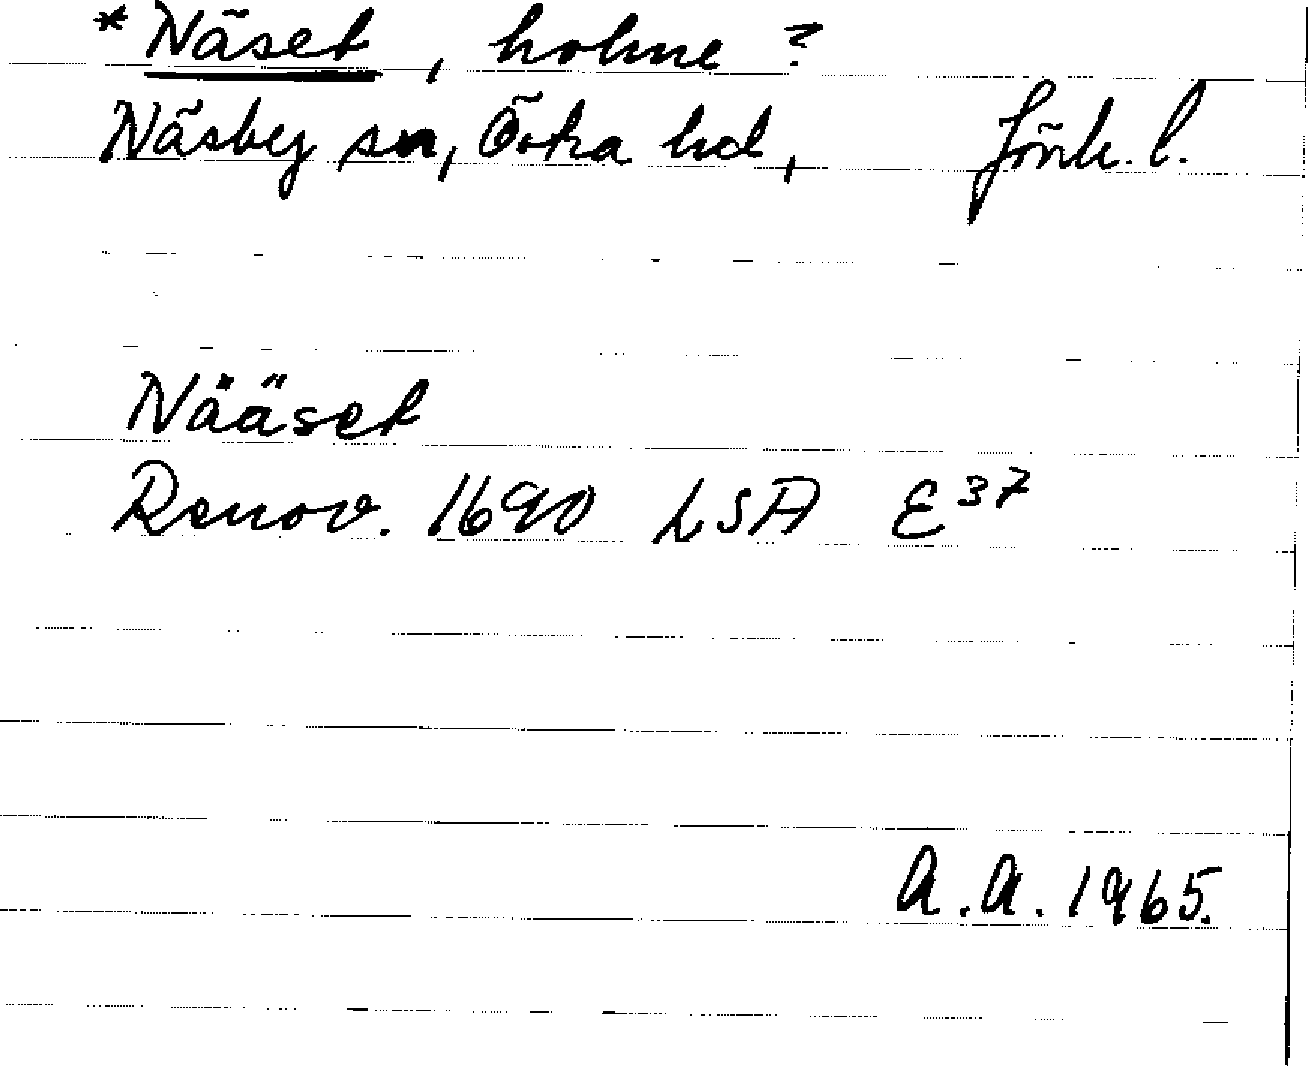 *Näset, holme?
Näsby sn, Östra hd, Jönk. l.
Nääset
Renov. 1690 LSA E 37
A.A. 1965.